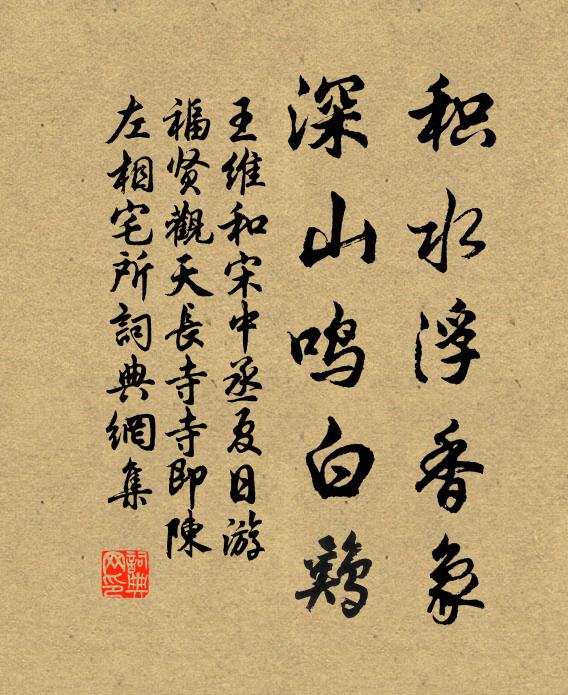 积水浮香象
深山鸣白鷄
王维和宋中丞夏日游
福贤觀天長寺寺即陳
左相宅所詞典網集
詞典网印